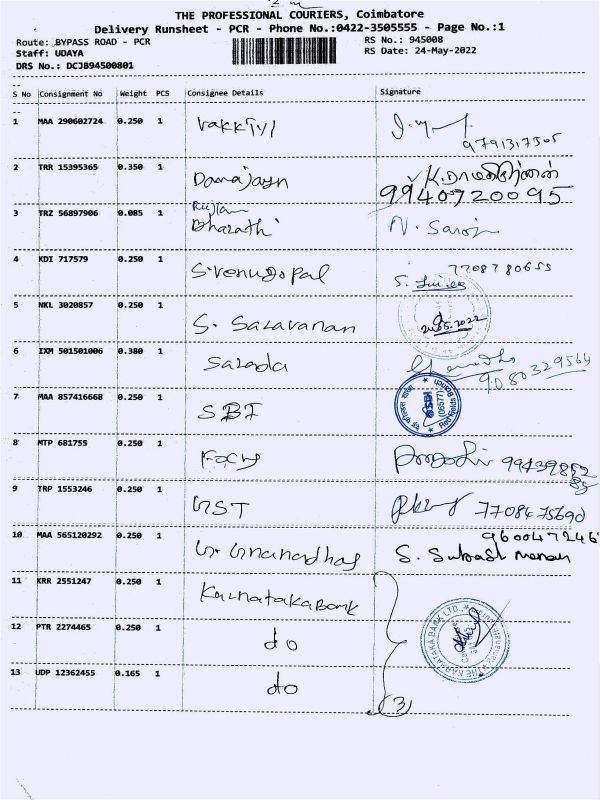 THE PROFESSIONAL COURIERS, Coimbatore
Delivery Runsheet - PCR - Phone No.:0422-3505555 - Page No.:1
Route: BYPASS ROAD - PCR RS No.: 945008
Staff: UDAYA RS Date: 24-May-2022
DRS No.: DCJB94500801
S No Consignment No Weight PCS Consignee Details Signature
1 MAA 290602724 0.250 1 Vakkiyl
9791317505
2 TRR 15395365 0.350 1 Danajayn K.
9940720095
3 TRZ 56897906 0.085 1 Bharathi N. Saroj
4 KDI 717579 0.250 1 S.venugopal 7708780655
5 NKL 3020857 0.250 1 S. Saravanan 24.05.2022
6 IXM 501501006 0.380 1 Sarada 9080329564
7 MAA 857416668 0.250 1 SBI (06577)
8 MTP 681755 0.250 1
9 TRP 1553246 0.250 1 GST
10 MAA 565120292 0.250 1 960047246
11 KRR 2551247 0.250 1 Karnataka Bank
12 PTR 2274465 0.250 1 do THE KARNATAKA BANK LTD.
13 UDP 12362455 0.165 1 do
(3)